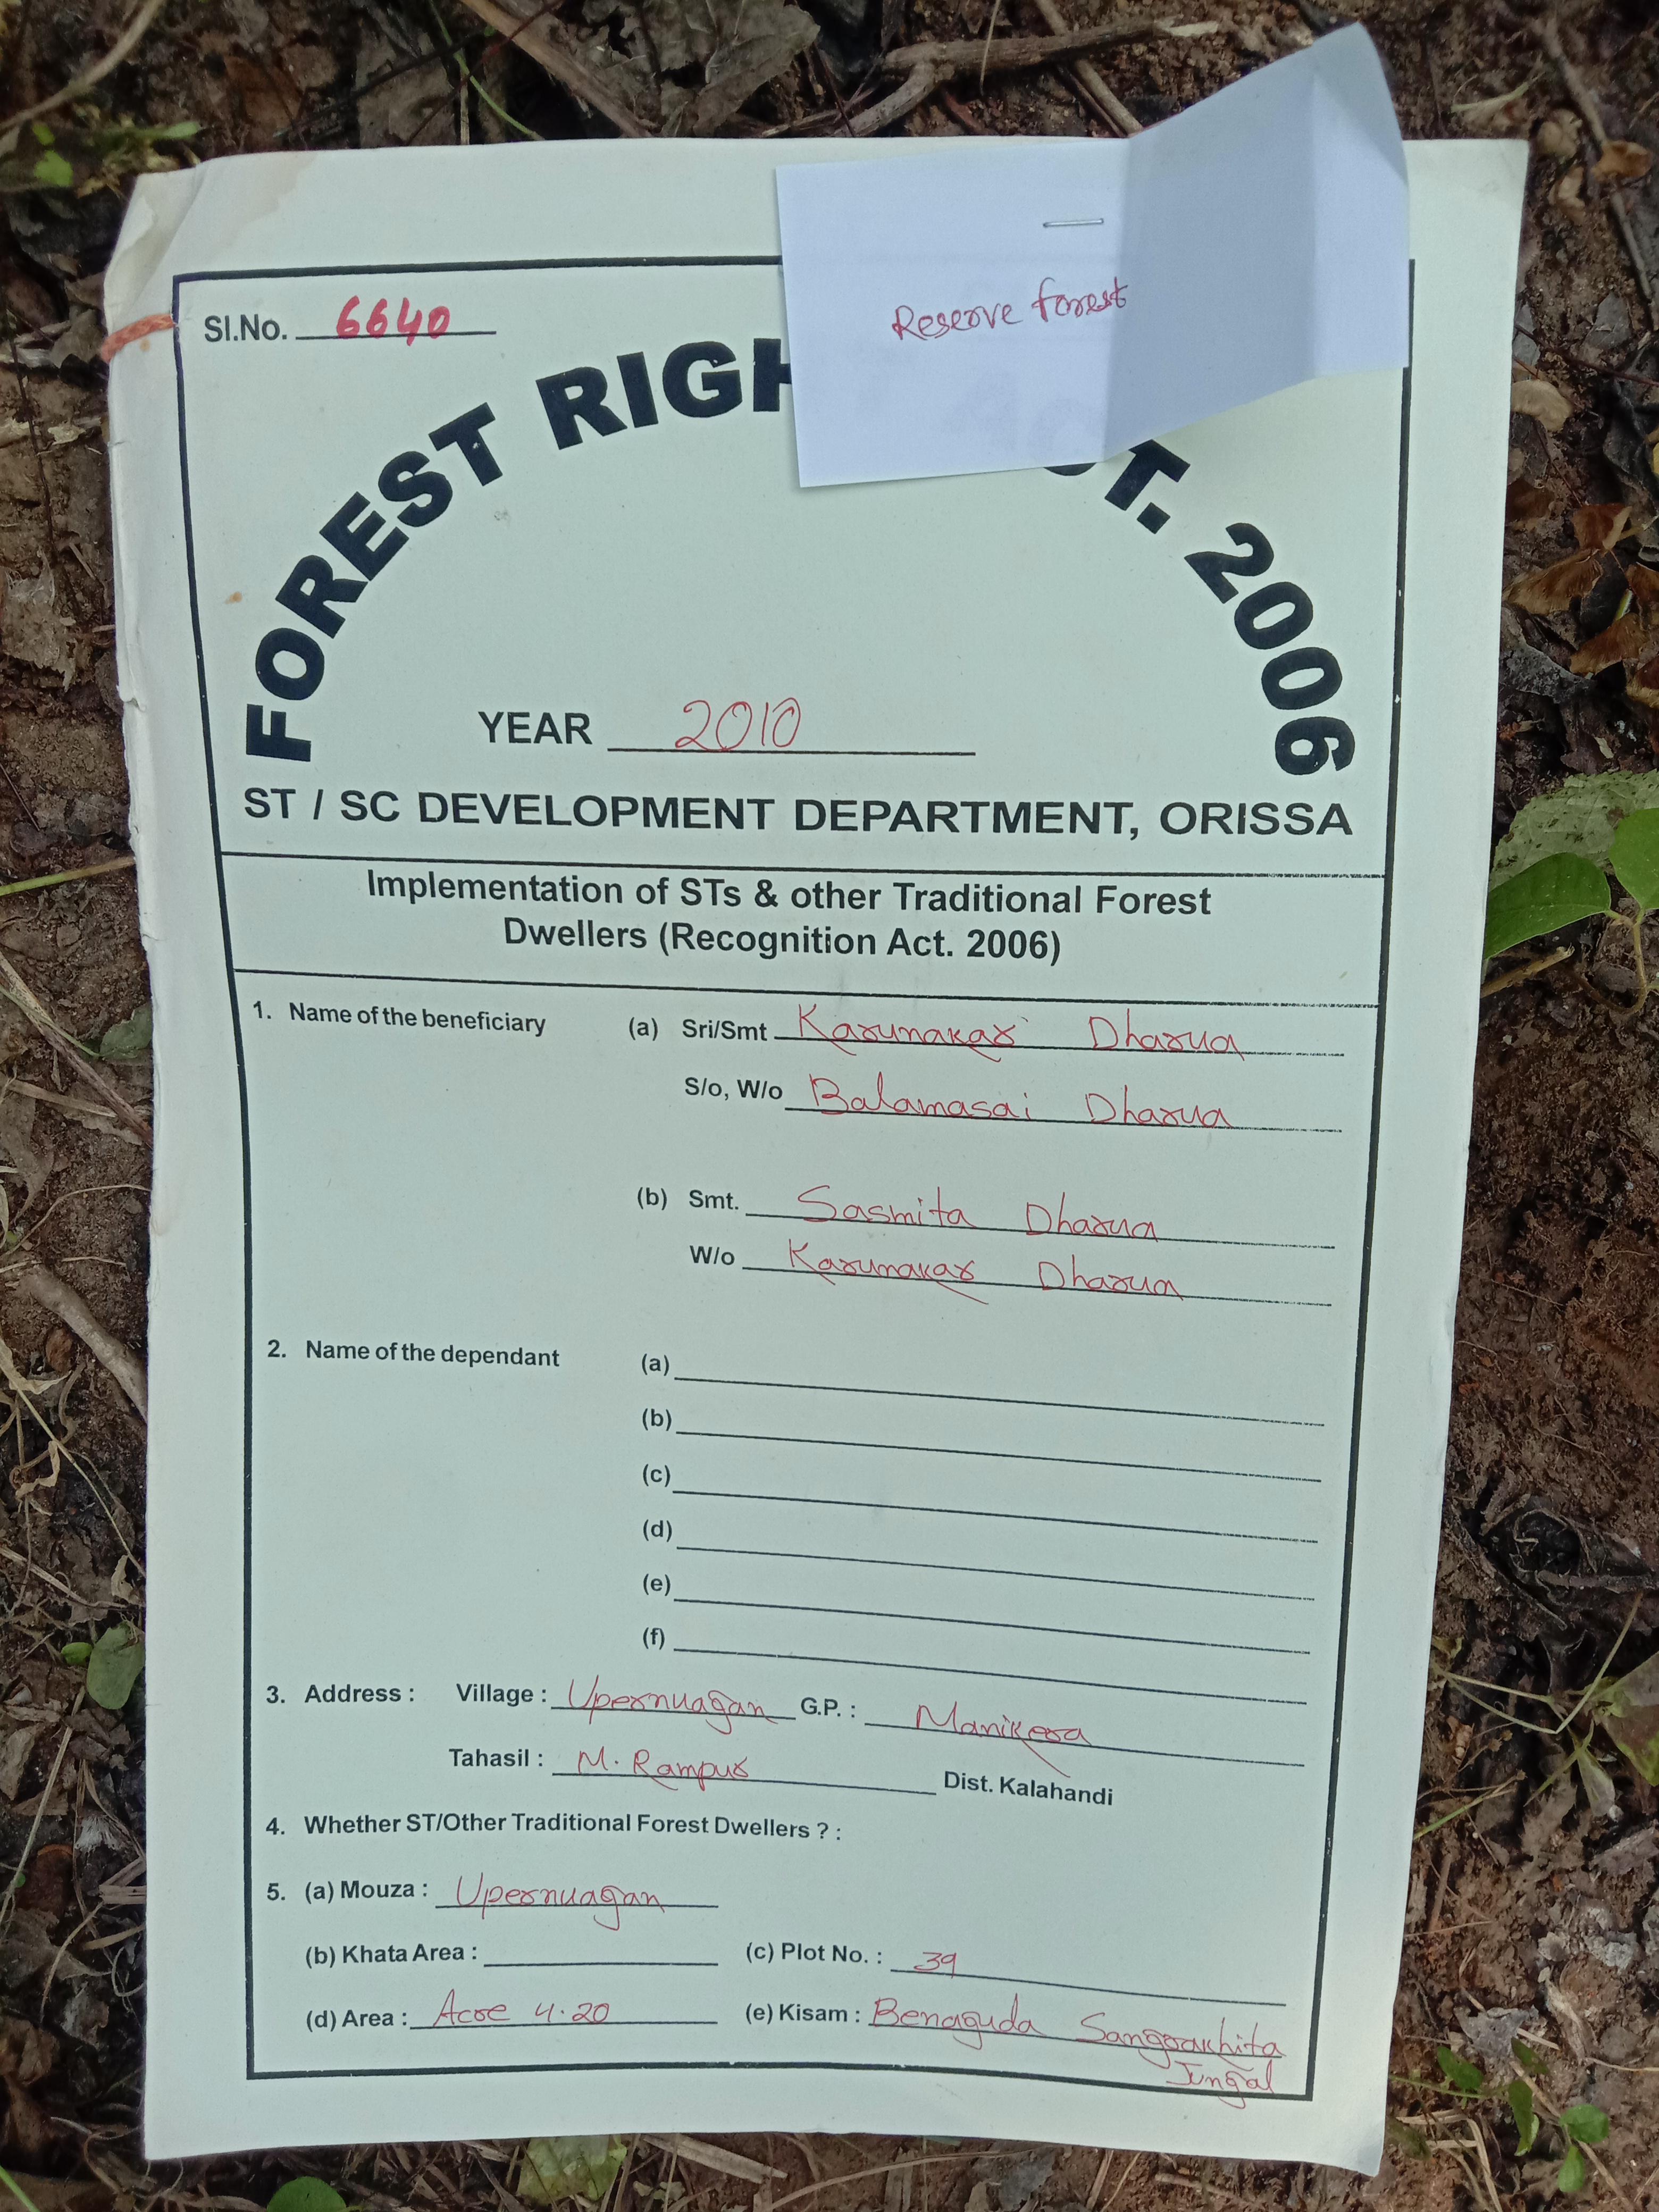 Reserve forest
Sl.No. 6640
FOREST RIGH CT. 2006
YEAR 2010
ST / SC DEVELOPMENT DEPARTMENT, ORISSA
Implementation of STs & other Traditional Forest
Dwellers (Recognition Act. 2006)
1. Name of the beneficiary (a) Sri/Smt Karunakar Dharua
S/o, W/o Balamasai Dharua
(b) Smt. Sasmita Dharua
W/o Karunakar Dharua
2. Name of the dependant (a)
(b)
(c)
(d)
(e)
(f)
3. Address : Village : Upernuagan G.P. : Manikera
Tahasil : M. Rampur Dist. Kalahandi
4. Whether ST/Other Traditional Forest Dwellers ? :
5. (a) Mouza : Upernuagan
(b) Khata Area : (c) Plot No. : 39
(d) Area : Acre 4.20 (e) Kisam : Benaguda Sangrakhita
Jungal